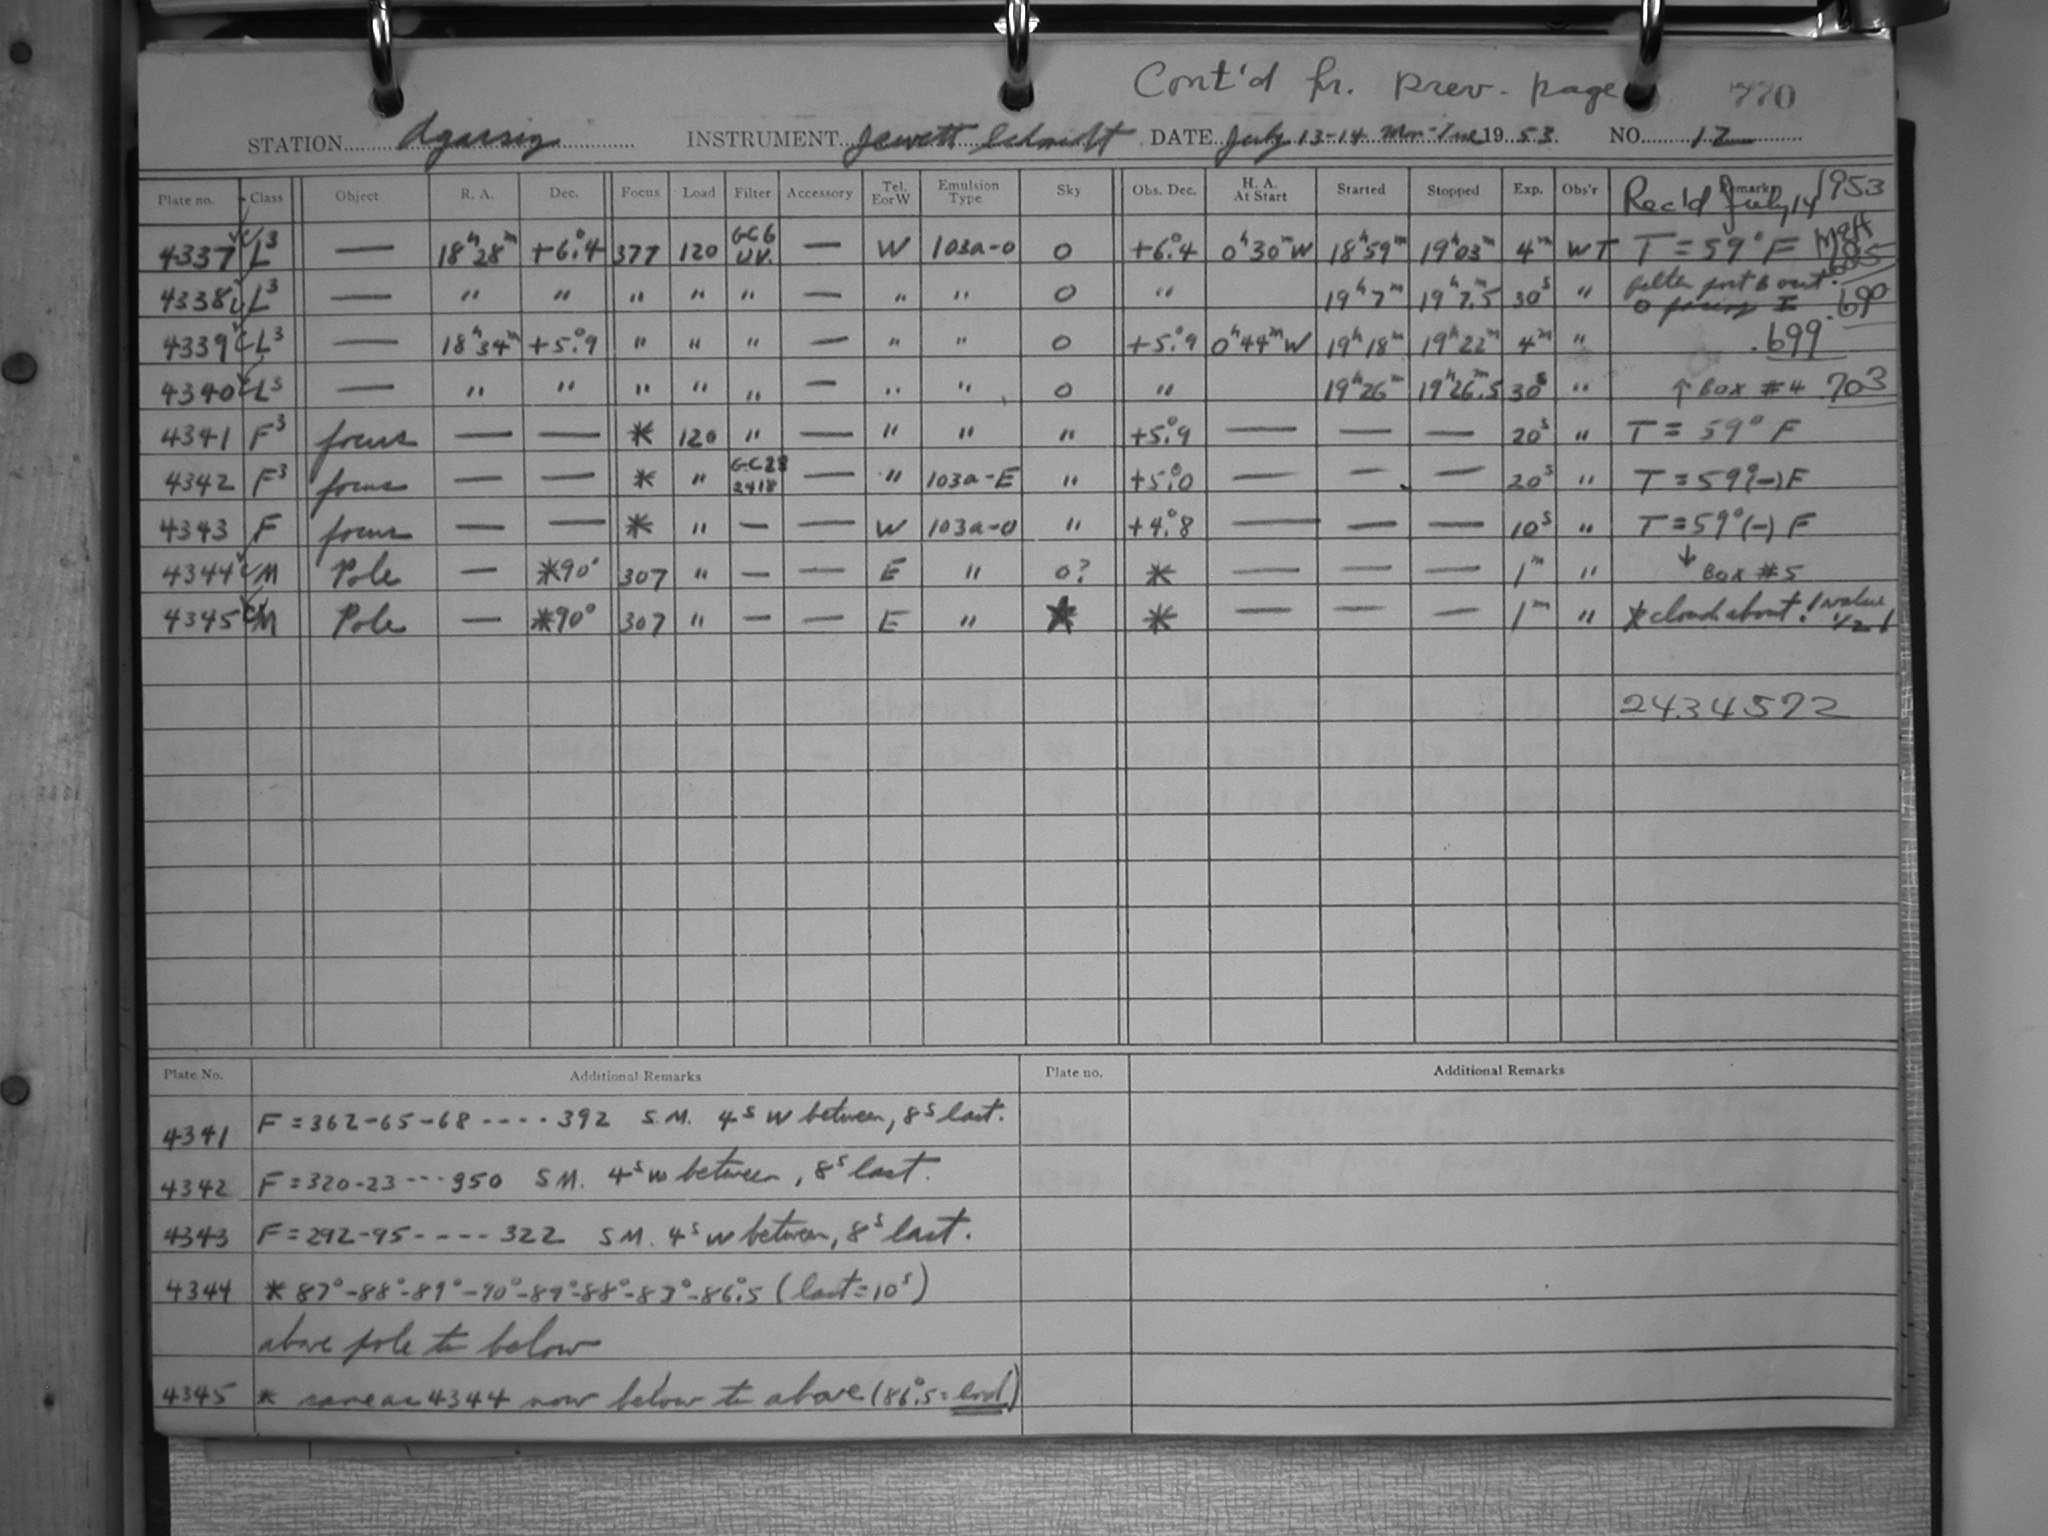 Cont'd fr. prev. page 770
STATION Agassiz INSTRUMENT Jewett Schmidt DATE July 13-14 Mon-Tue 1953 NO. 12
Plate no. Class Object R. A. Dec. Focus Load Filter Accessory Tel. EorW Emulsion Type Sky Obs. Dec. H. A. At Start Started Stopped Exp. Obs'r Remarks
Rec'd July 14 1953
4337 L³ — 18ʰ28ᵐ +6.°4 377 120 GC6 UV. — W 103a-O O +6.°4 0ʰ30ᵐW 18ʰ59ᵐ 19ʰ03ᵐ 4ᵐ WT T=59°F
4338 L³ — " " " " " — " " O " 19ʰ7ᵐ 19ʰ7ᵐ.5 30ˢ " .690
4339 L³ — 18ʰ34ᵐ +5.°9 " " " — " " O +5.°9 0ʰ44ᵐW 19ʰ18ᵐ 19ʰ22ᵐ 4ᵐ " .699
4340 L³ — " " " " " — " " O " 19ʰ26ᵐ 19ʰ26ᵐ.5 30ˢ " ↑ Box #4 .703
4341 F³ focus — — * 120 " — " " " +5.°9 — — — 20ˢ " T = 59° F
4342 F³ focus — — * " GC28 2418 — " 103a-E " +5.°0 — — — 20ˢ " T = 59°(-)F
4343 F focus — — * " — — W 103a-O " +4.°8 — — — 10ˢ " T=59°(-) F
4344 M Pole — *90° 307 " — — E " O? * — — — 1ᵐ " ↓ Box #5
4345 M Pole — *90° 307 " — — E " * * — — — 1ᵐ " *clouds about! value 1/2!
2434572
Plate No. Additional Remarks Plate no. Additional Remarks
4341 F=362-65-68----392 S.M. 4ˢ W between, 8ˢ last.
4342 F=320-23---350 S.M. 4ˢ W between, 8ˢ last.
4343 F=292-95-----322 S.M. 4ˢ W between, 8ˢ last.
4344 * 87°-88°-89°-90°-89°-88°-87°-86.°5 (last=10ˢ)
above pole to below
4345 * same as 4344 now below to above (86.°5=end)